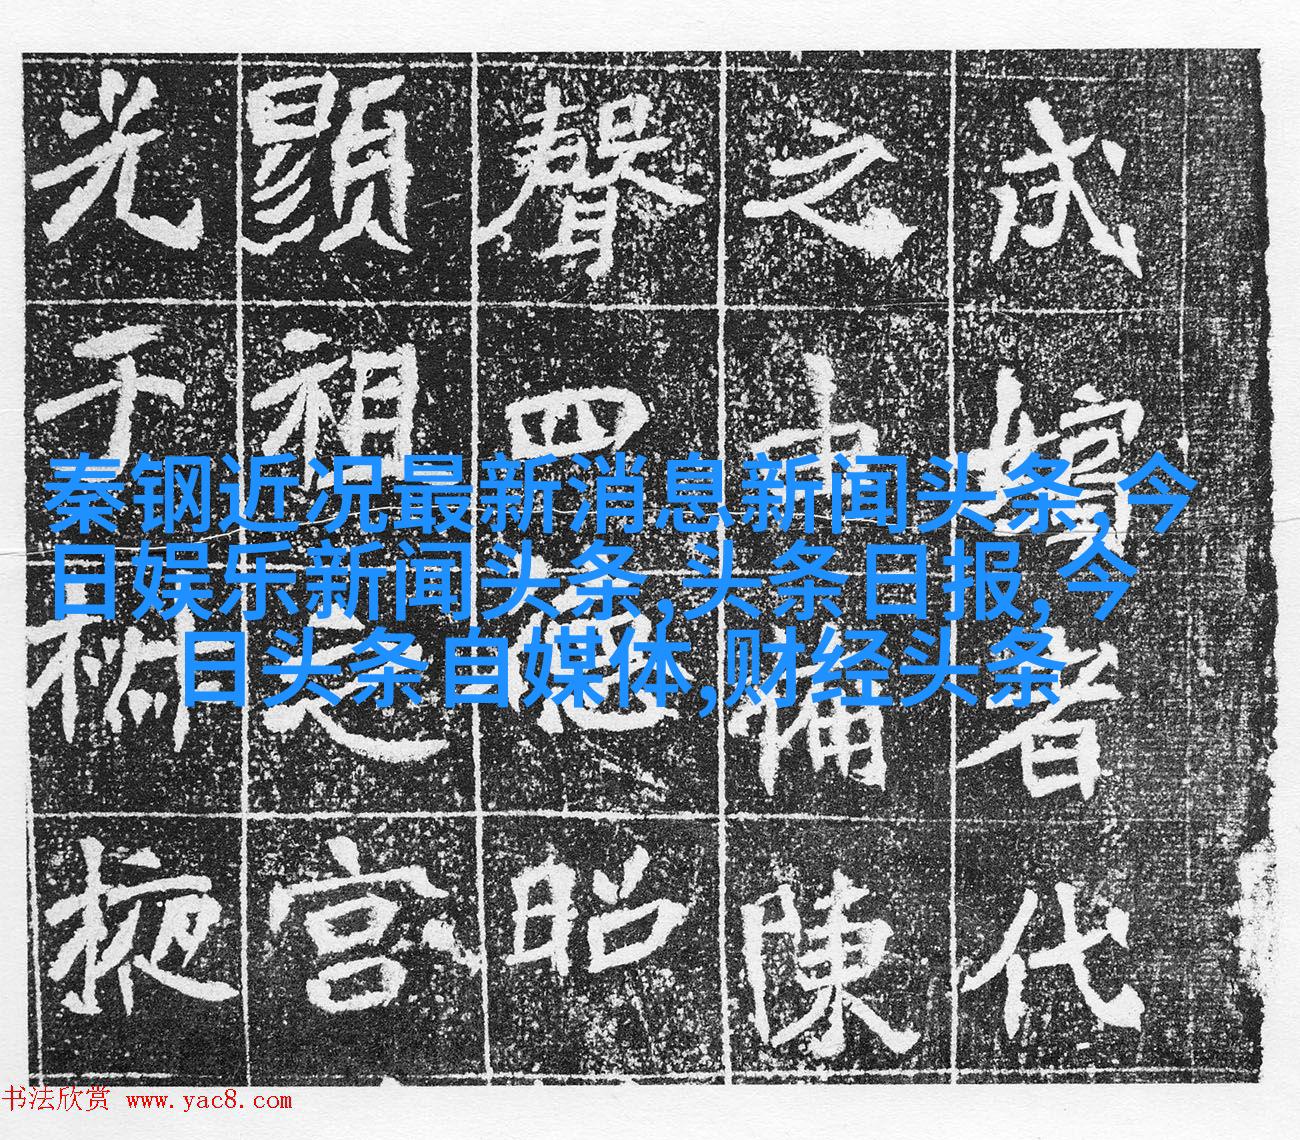 者代
之中備陳
聲四德昭
顯祖之宮
光于掖
秦钢近况最新消息新闻头条,今
日娱乐新闻头条,头条日报,今
日头条自媒体,财经头条
书法欣赏 www.yac8.com